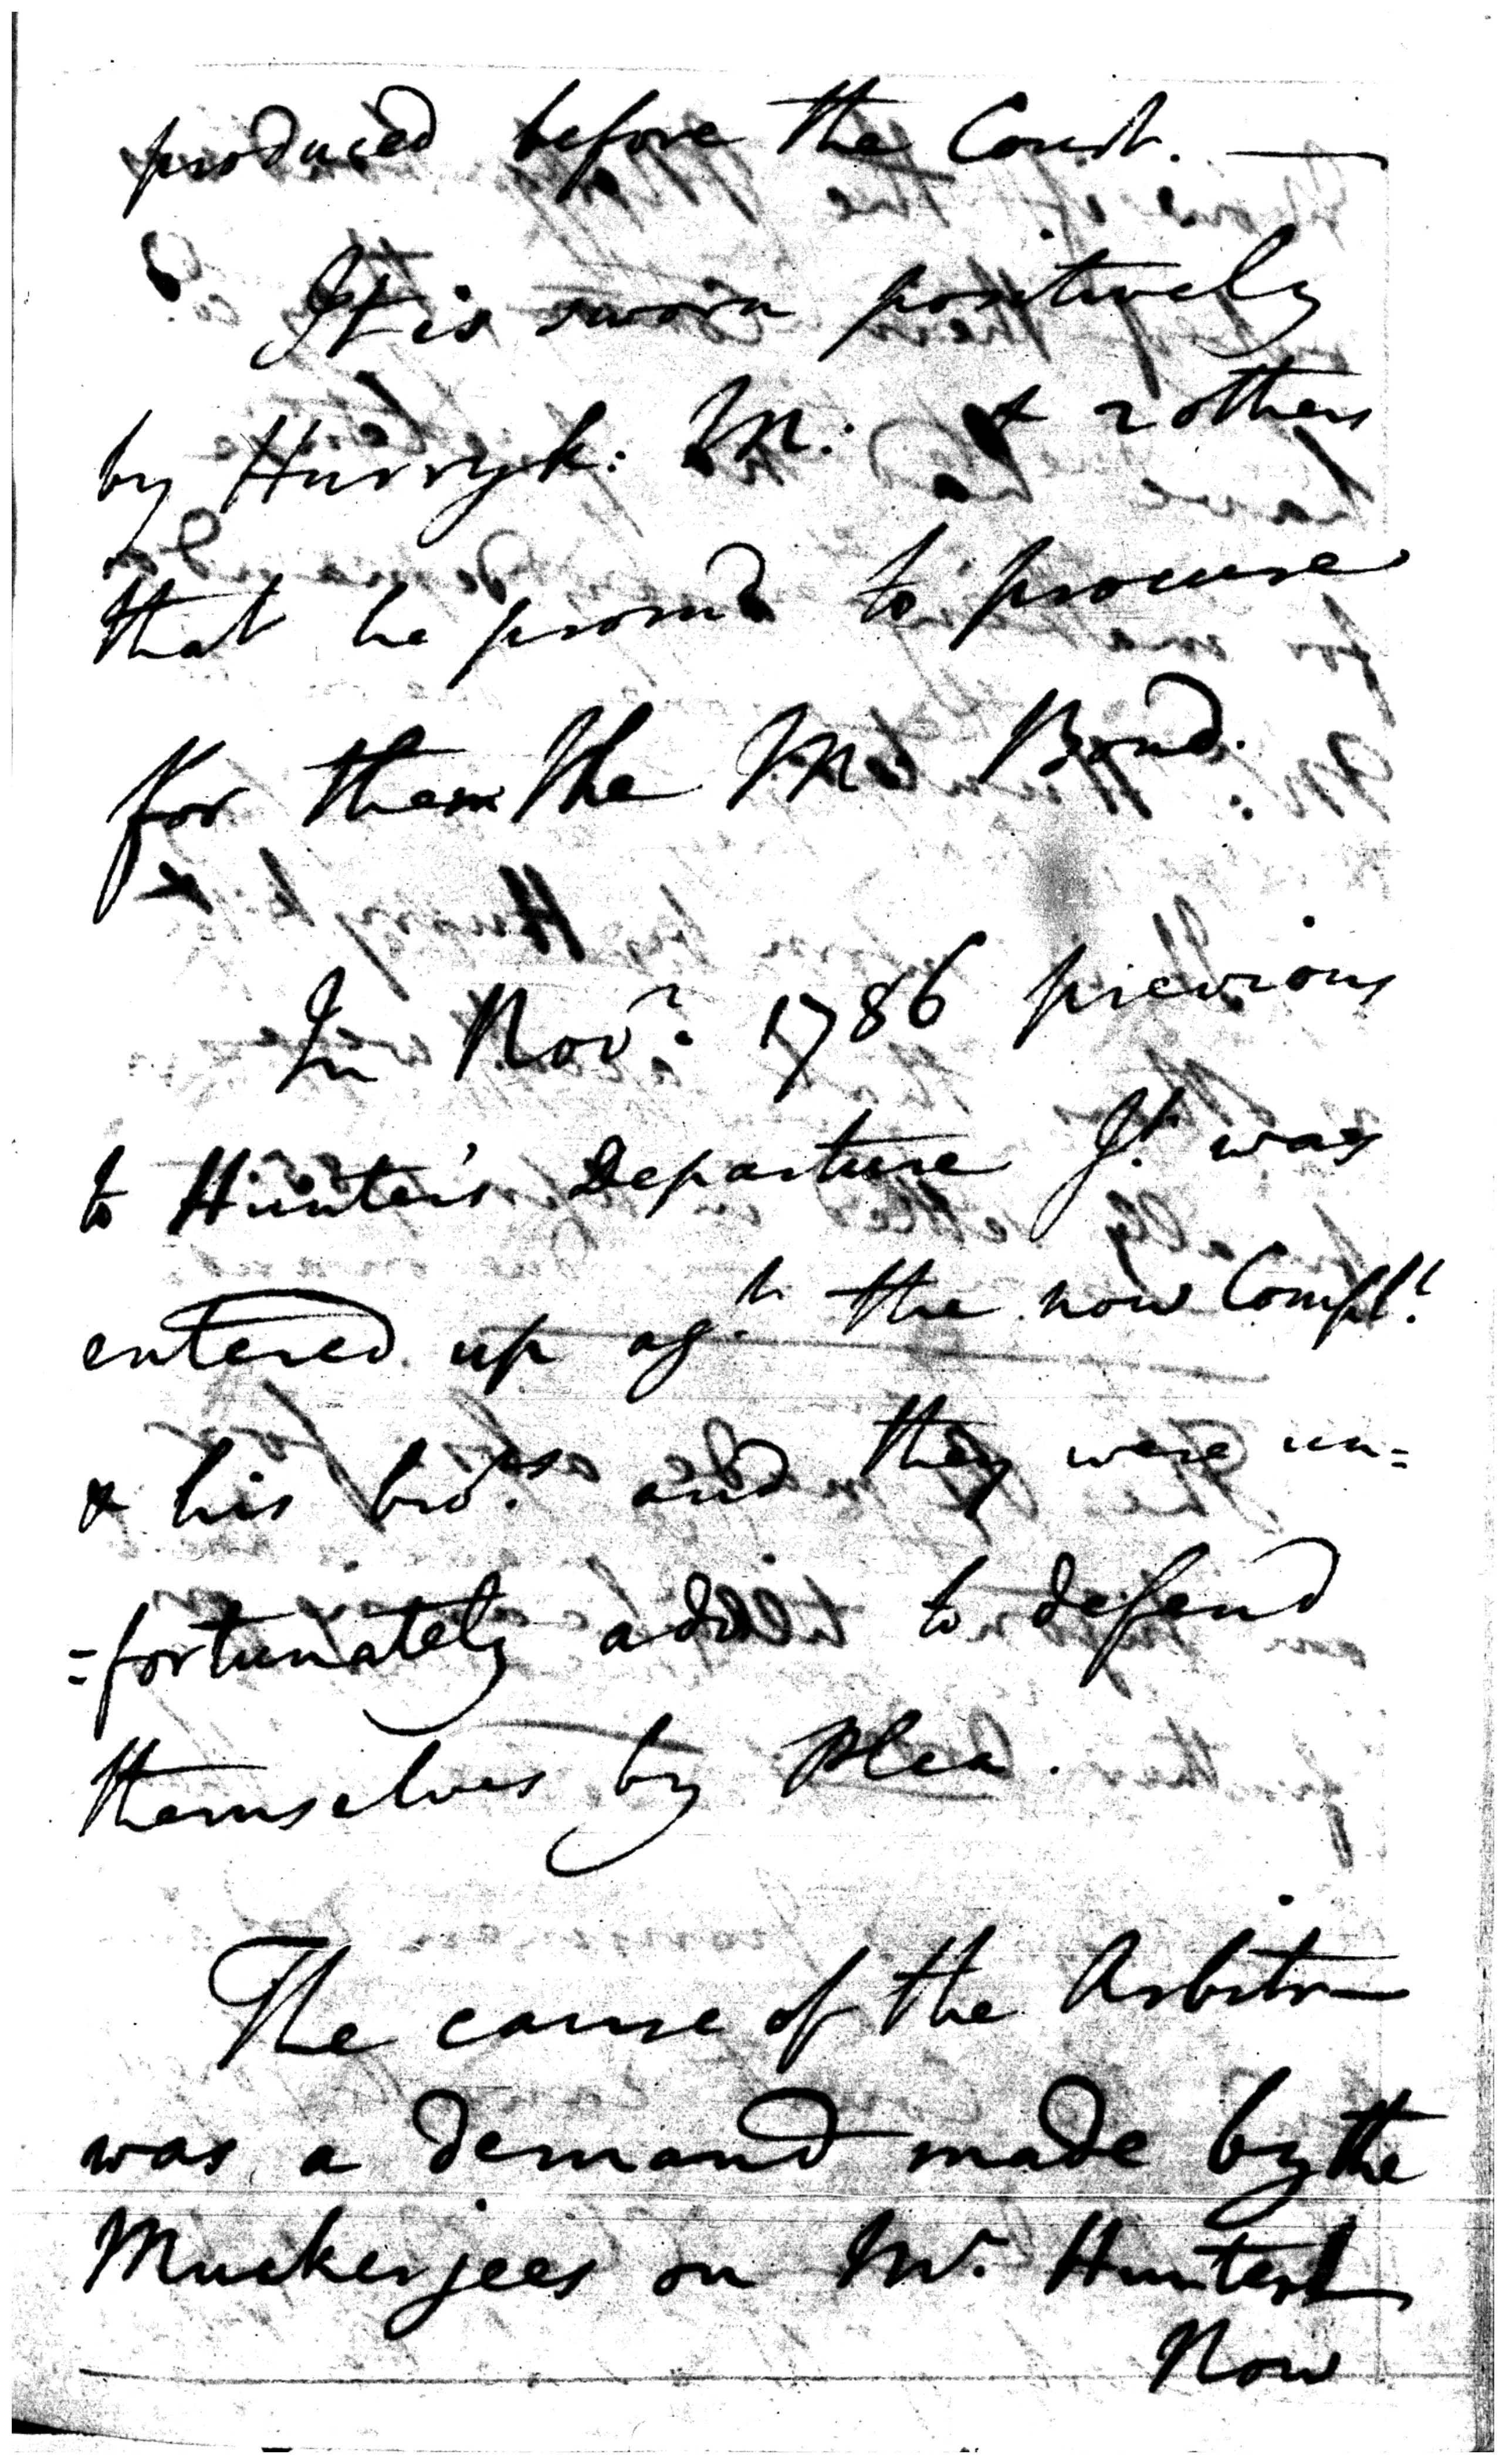 produced before the Court. —
It is sworn positively
by Hurryk: M: & 2 others
that he promd to procure
for them the M Bond.
In Novr. 1786 previous
to Hunter's Departure Jt. was
entered up agt. the now Complt.
& his bros. and they were un=
=fortunately advisd to defend
themselves by Plea.
The cause of the Arbitr—
was a demand made by the
Muckerjees on Mr. Hunter
Now